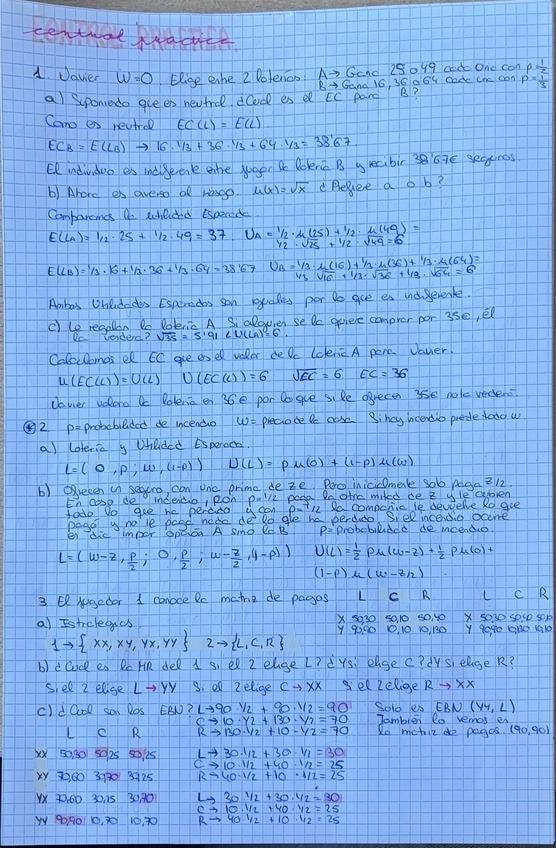 CONTROL PRACTICA
control practica.
1. Javier W=0. Elige entre 2 loterias. A→ Gana 25 o 49 cada una con p=1/2
B→ Gana 16, 36 o 64 cada una con p=1/3
a) Suponiendo que es neutral. ¿Cual es el EC para B?
Como es neutral EC(L) = E(L)
EC_B = E(L_B) → 16·1/3 + 36·1/3 + 64·1/3 = 38'67.
El individuo es indiferente entre jugar la loteria B y recibir 38'67€ seguros.
b) Ahora es averso al riesgo. u(x)=√x ¿Prefiere a o b?
Comparamos la utilidad Esperada
E(L_A) = 1/2·25 + 1/2·49 = 37 U_A = 1/2·u(25) + 1/2·u(49) =
1/2·√25 + 1/2·√49 = 6
E(L_B) = 1/3·16 + 1/3·36 + 1/3·64 = 38'67 U_B = 1/3·u(16) + 1/3·u(36) + 1/3·u(64) =
1/3 √16 + 1/3·√36 + 1/3·√64 = 6
Ambas Utilidades Esperadas son iguales por lo que es indiferente.
c) Le regalan la loteria A. Si alguien se la quiere comprar por 35€, él
la vendera? √35 = 5'91 < U(L_A) = 6.
Calculamos el EC que es el valor de la loteria A para Javier.
u(EC(L)) = U(L) U(EC(L)) = 6 √EC = 6 EC = 36
Javier valora la loteria en 36€ por lo que si le ofrecen 35€ no la venderá.
*2 p=probabilidad de incendio W=precio de la casa Si hay incendio pierde todo w
a) Lotería y Utilidad Esperada.
L = (0, p; w, (1-p)) U(L) = p u(0) + (1-p) u(w)
b) Ofrecen un seguro, con una prima de z€. Pero inicialmente solo paga z/2.
En caso de incendio, con p=1/2 paga la otra mitad de z y le cubren
todo lo que ha perdido y con p=1/2 la compañía le devuelve lo que
pagó y no le paga nada de lo que ha perdido. Si el incendio ocurre
en dia impar opcion A sino la B p=probabilidad de incendio.
L = (w-z, p/2; 0, p/2; w-z/2, (1-p)) U(L) = 1/2 p u(w-z) + 1/2 p u(0) +
(1-p) u(w-z/2)
3 El jugador 1 conoce la matriz de pagos L C R L C R
a) Estrategias X 50,30 50,10 50,40 X 50,30 50,40 50,10
1→{XX, XY, YX, YY} 2→{L, C, R} Y 90,90 10,10 10,130 Y 90,90 10,130 10,10
b) ¿Cual es la MR del 1 si el 2 elige L? ¿Y si elige C? ¿Y si elige R?
Si el 2 elige L → YY Si el 2 elige C → XX Si el 2 elige R → XX
c) ¿Cual son los EBN? L→90·1/2 + 90·1/2 = 90 Solo es EBN (YY, L)
C→10·1/2 + 130·1/2 = 70 También lo vemos en
L C R R→130·1/2 + 10·1/2 = 70 la matriz de pagos. (90,90)
XX 50,30 50,25 50,25 L→30·1/2 + 30·1/2 = 30
C→10·1/2 + 40·1/2 = 25
XY 70,60 30,70 30,25 R→40·1/2 + 10·1/2 = 25
YX 70,60 30,25 30,70 L→30·1/2 + 30·1/2 = 30
C→10·1/2 + 40·1/2 = 25
YY 90,90 10,70 10,70 R→40·1/2 + 10·1/2 = 25